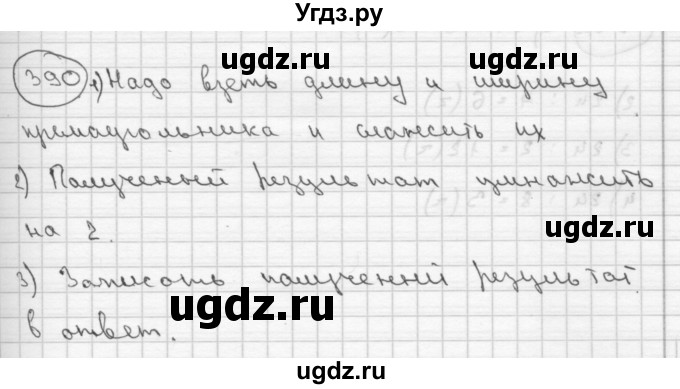 Угдз.ру
390 1) Надо взеть длину и ширину
прямоугольника и сложить их
2) Полученный результат умножить
на 2.
3) Записать полученный результат
в ответ.
ugdz.ru ugdz.ru
ugdz.ru ugdz.ru
ugdz.ru
ugdz.ru
ugdz.ru ugdz.ru